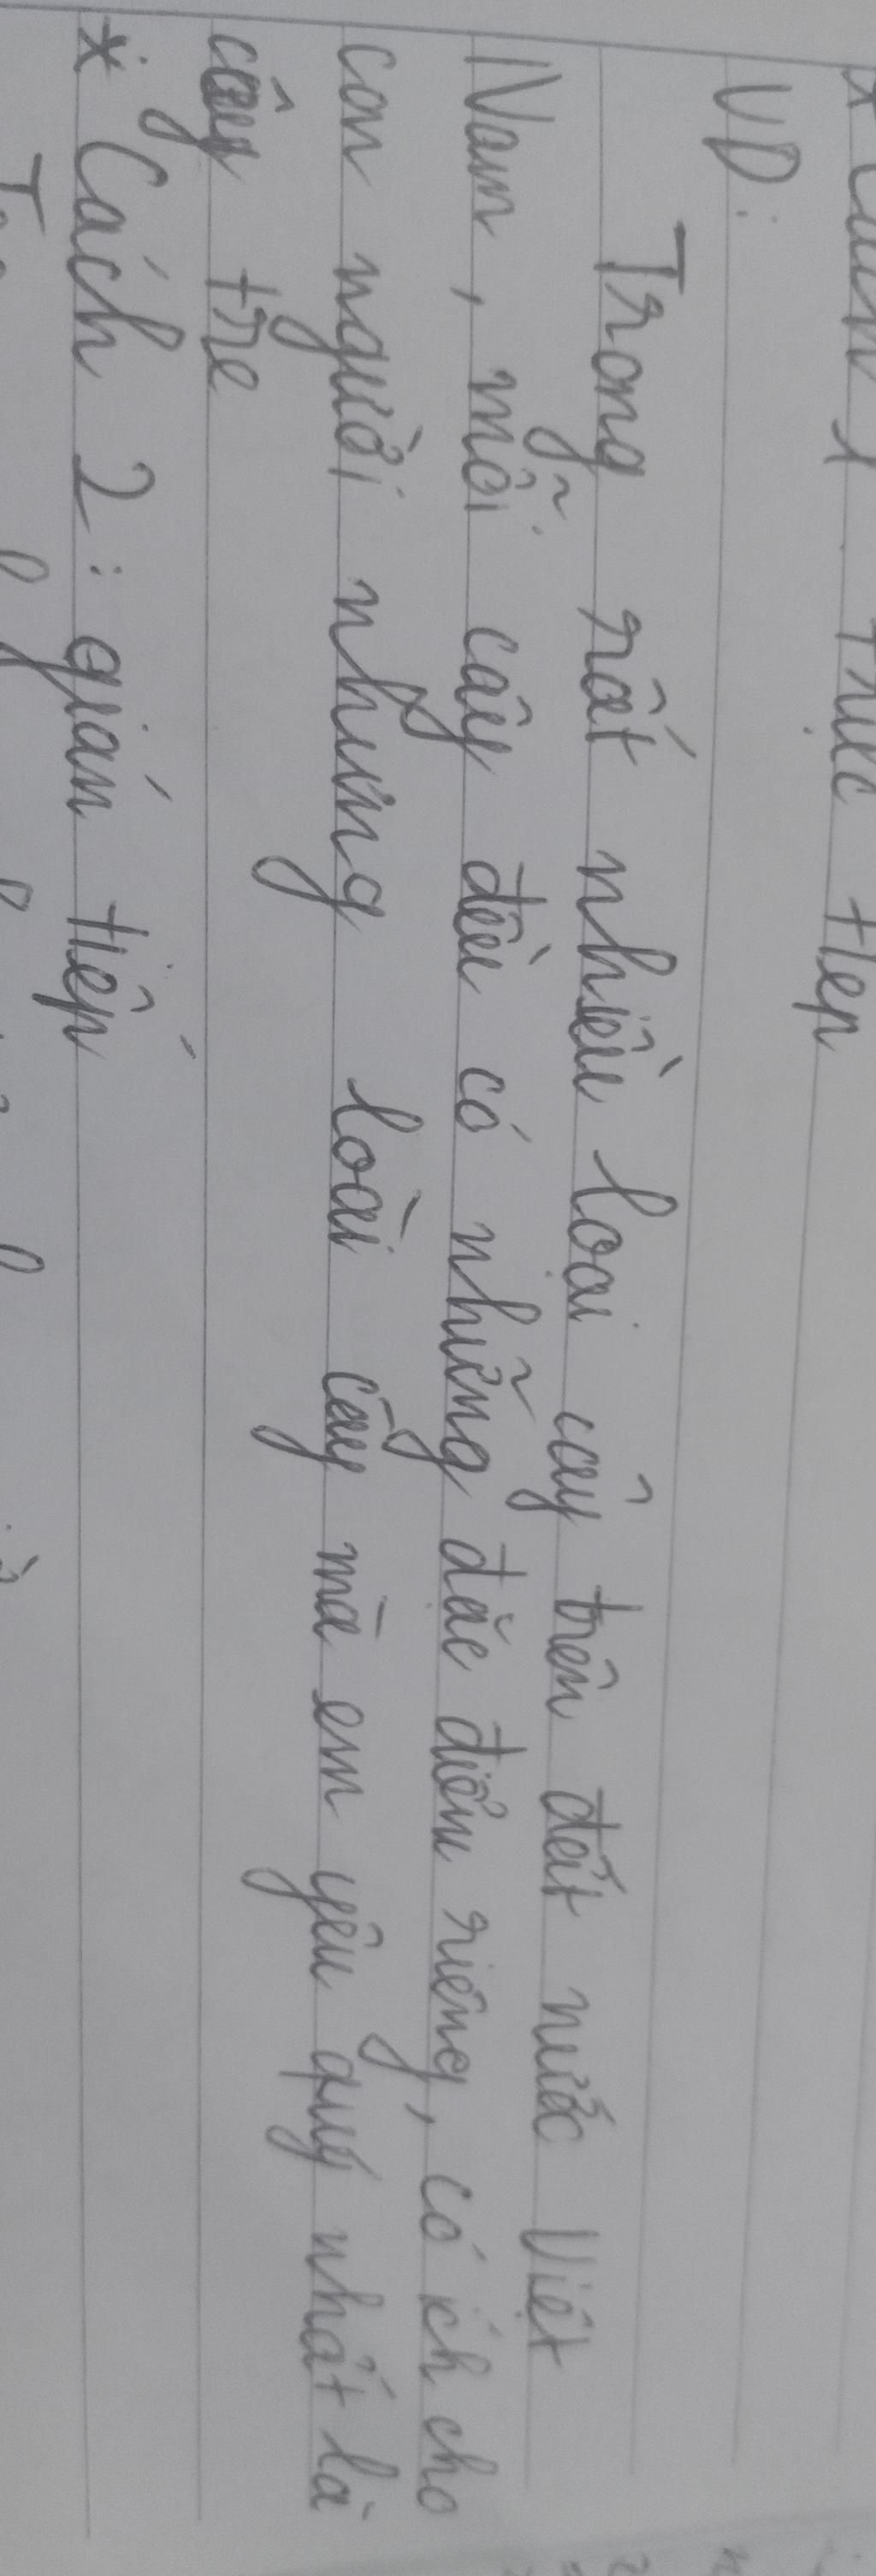 * Cách 1: trực tiếp
VD:
Trong rất nhiều loại cây trên đất nước Việt
Nam, mỗi cây đều có những đặc điểm riêng, có ích cho
con người nhưng loài cây mà em yêu quý nhất là
cây tre
* Cách 2: gián tiếp